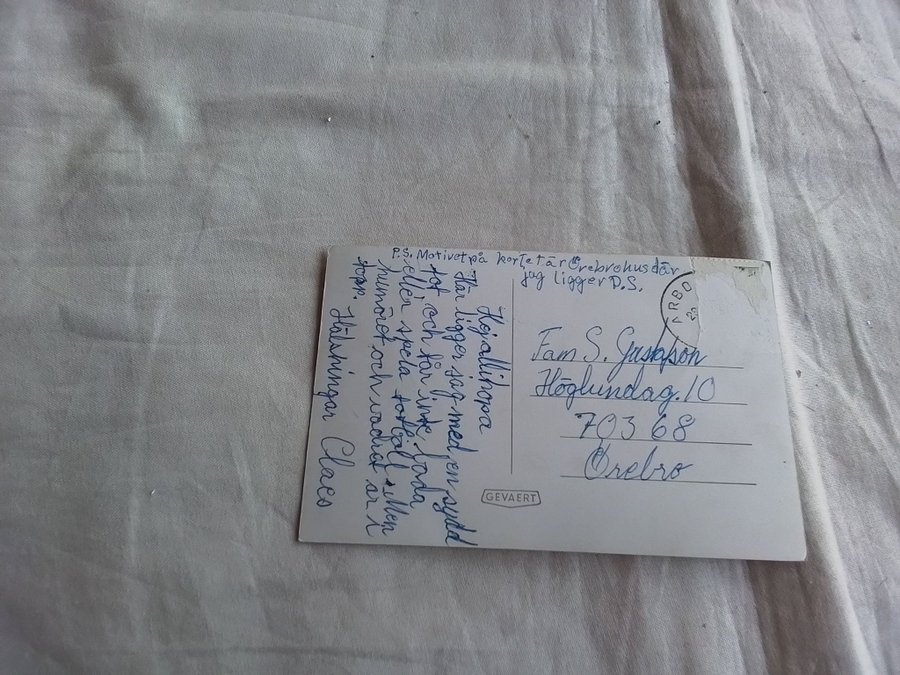 P.S. Motivet på kortet är Örebrohus där
jag ligger P.S.
Hej allihopa
Här ligger jag med en sydd
fot, och får inte bada
eller spela fotboll. Men
humöret och vädret är i
topp. Hälsningar Claes
ARBO
Fam S. Gustafson
Höglundag. 10
703 68
Örebro
GEVAERT